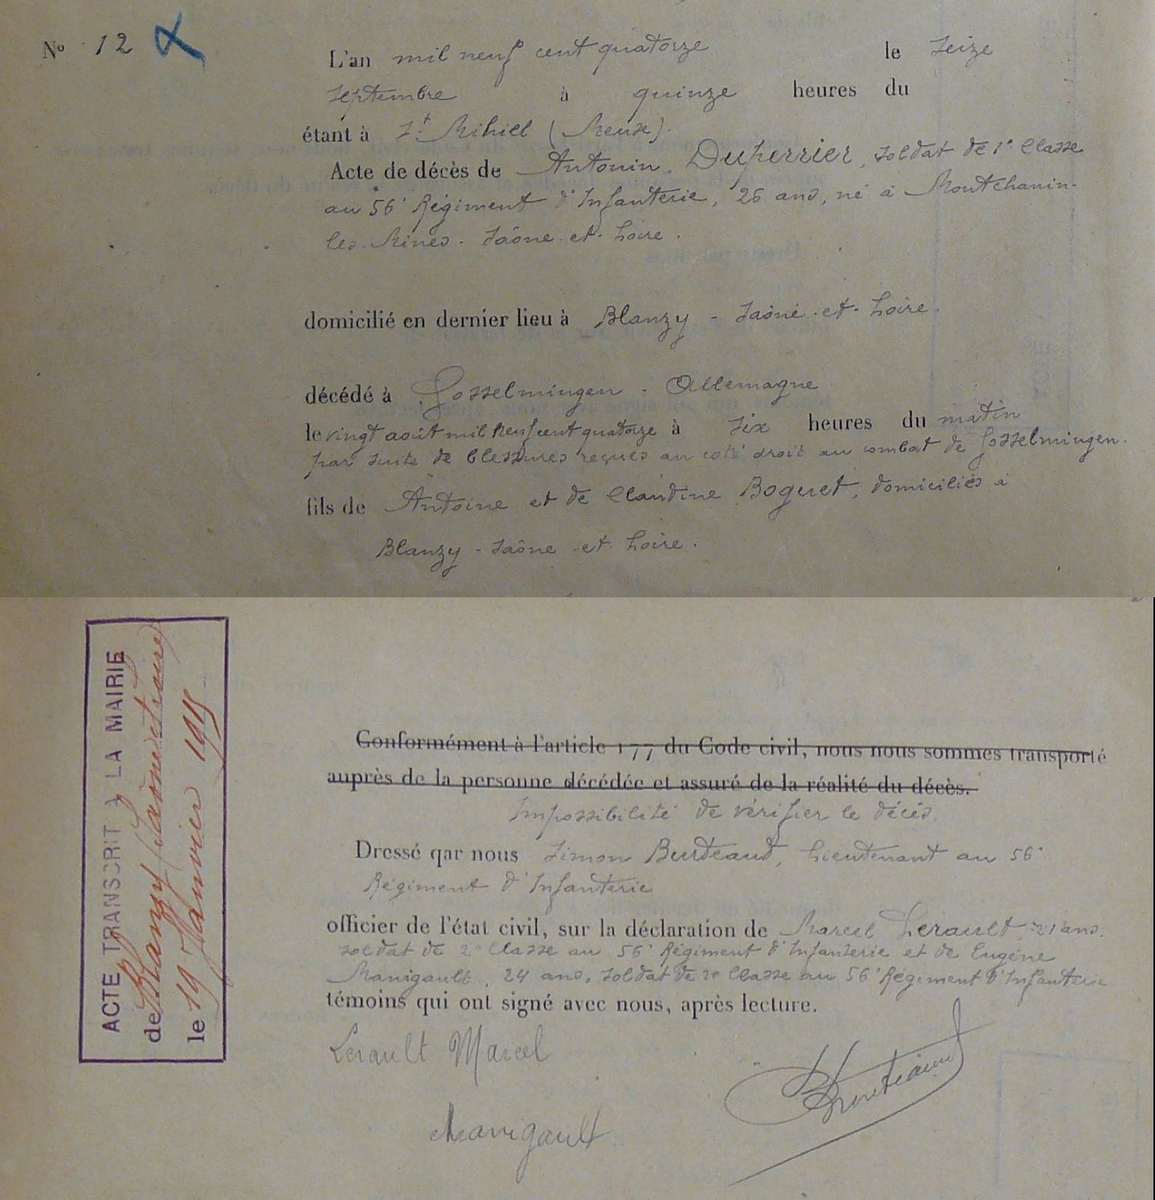 No 12
L'an mil neuf cent quatorze le seize
septembre à quinze heures du
étant à St Mihiel (Meuse).
Acte de décès de Antonin Duperrier, soldat de 1e Classe
au 56e Régiment d'Infanterie, 26 ans, né à Montchanin-
les-Mines. Saône-et-Loire.
domicilié en dernier lieu à Blanzy - Saône-et-Loire.
décédé à Gosselmingen - Allemagne
le vingt août mil neuf cent quatorze à six heures du matin
par suite de blessures reçues au coté droit au combat de Gosselmingen.
fils de Antoine et de Claudine Boguet, domiciliés à
Blanzy - Saône-et-Loire.
ACTE TRANSCRIT À LA MAIRIE
de Blanzy (Saône et Loire)
le 19 Janvier 1915
Conformément à l'article 177 du Code civil, nous nous sommes transporté
auprès de la personne décédée et assuré de la réalité du décès.
Impossibilité de vérifier le décés.
Dressé qar nous Simon Burdeaud, Lieutenant au 56e
Régiment d'Infanterie
officier de l'état civil, sur la déclaration de Marcel Lerault 21 ans.
soldat de 2e Classe au 56e Régiment d'Infanterie et de Eugène
Manigault, 24 ans, soldat de 2e Classe au 56e Régiment d'Infanterie
témoins qui ont signé avec nous, après lecture.
Lerault Marcel
Manigault